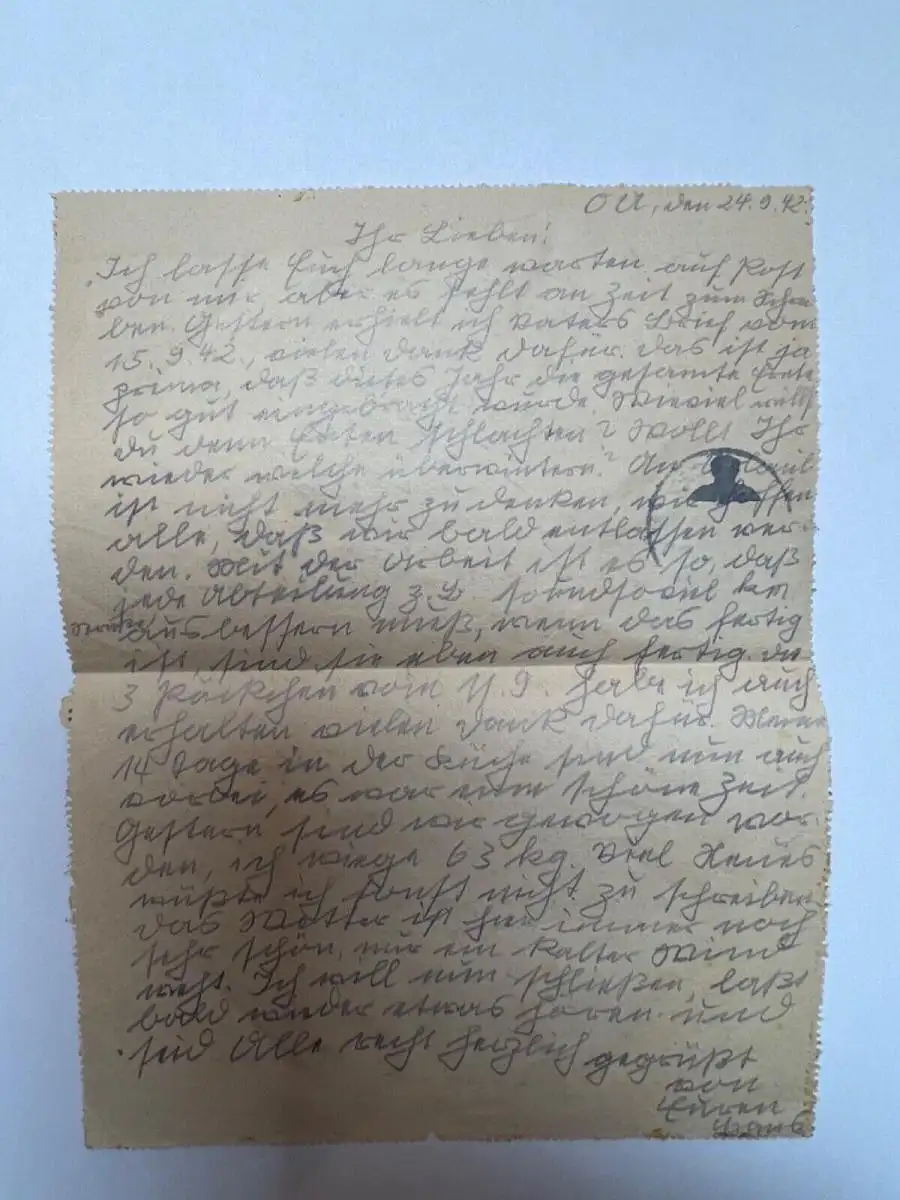 O U, den 24.9.42.
Ihr Lieben!
Ich lasse Euch lange warten auf Post
von mir, aber es fehlt an Zeit zum Schrei
ben. Gestern erhielt ich Vaters Brief vom
15.9.42., vielen Dank dafür. Das ist ja
prima, daß dieses Jahr die gesamte Ernte
so gut eingebracht wurde. Wieviel willst
du denn Enten schlachten? Wollt Ihr
wieder welche überwintern? An
ist nicht mehr zu denken, wir hoffen
alle, daß wir bald entlassen wer-
den. Mit der Arbeit ist es so, daß
jede Abteilung z.B. soundsoviel km
ausbessern muß, wenn das fertig
ist, sind sie eben auch fertig. Die
3 Päckchen vom 11.9. habe ich auch
erhalten vielen Dank dafür. Meine
14 Tage in der Küche sind nun auch
vorbei, es war eine schöne Zeit.
Gestern sind wir gewogen wor-
den, ich wiege 63 kg. Viel Neues
wüßte ich sonst nicht zu schreiben
das Wetter ist hier immer noch
sehr schön, nur ein kalter Wind
weht. Ich will nun schließen, laßt
bald wieder etwas hören und
seid Alle recht herzlich gegrüßt
von
Euren